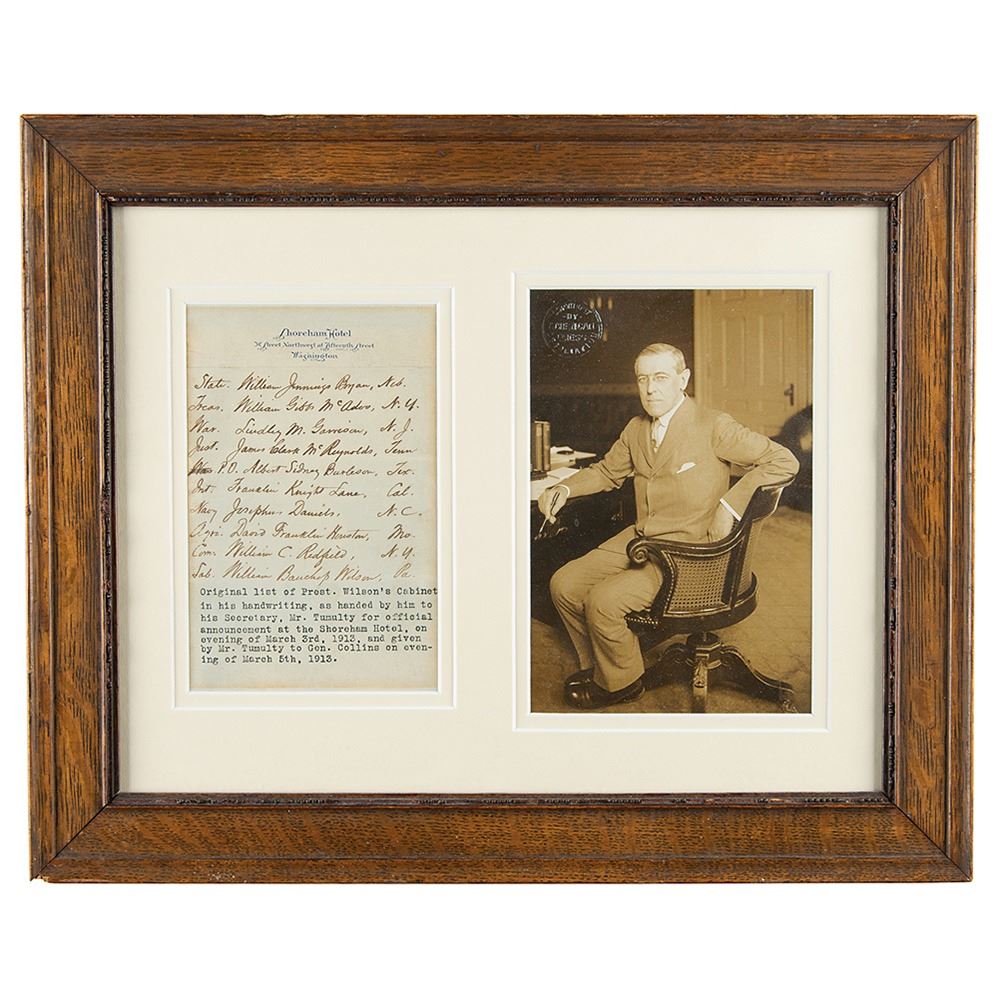 Shoreham Hotel
H Street Northwest at Fifteenth Street
Washington
State. William Jennings Bryan, Neb.
Treas. William Gibbs McAdoo, N.Y.
War. Lindley M. Garrison, N.J.
Just. James Clark McReynolds, Tenn
P.O. Albert Sidney Burleson, Tex.
Int. Franklin Knight Lane, Cal.
Navy Josephus Daniels, N.C.
Agri. David Franklin Houston, Mo.
Com. William C. Redfield, N.Y.
Lab. William Bauchop Wilson, Pa.
Original list of Prest. Wilson's Cabinet
in his handwriting, as handed by him to
his Secretary, Mr. Tumulty for official
announcement at the Shoreham Hotel, on
evening of March 3rd, 1913, and given
by Mr. Tumulty to Gen. Collins on even-
ing of March 5th, 1913.
BY